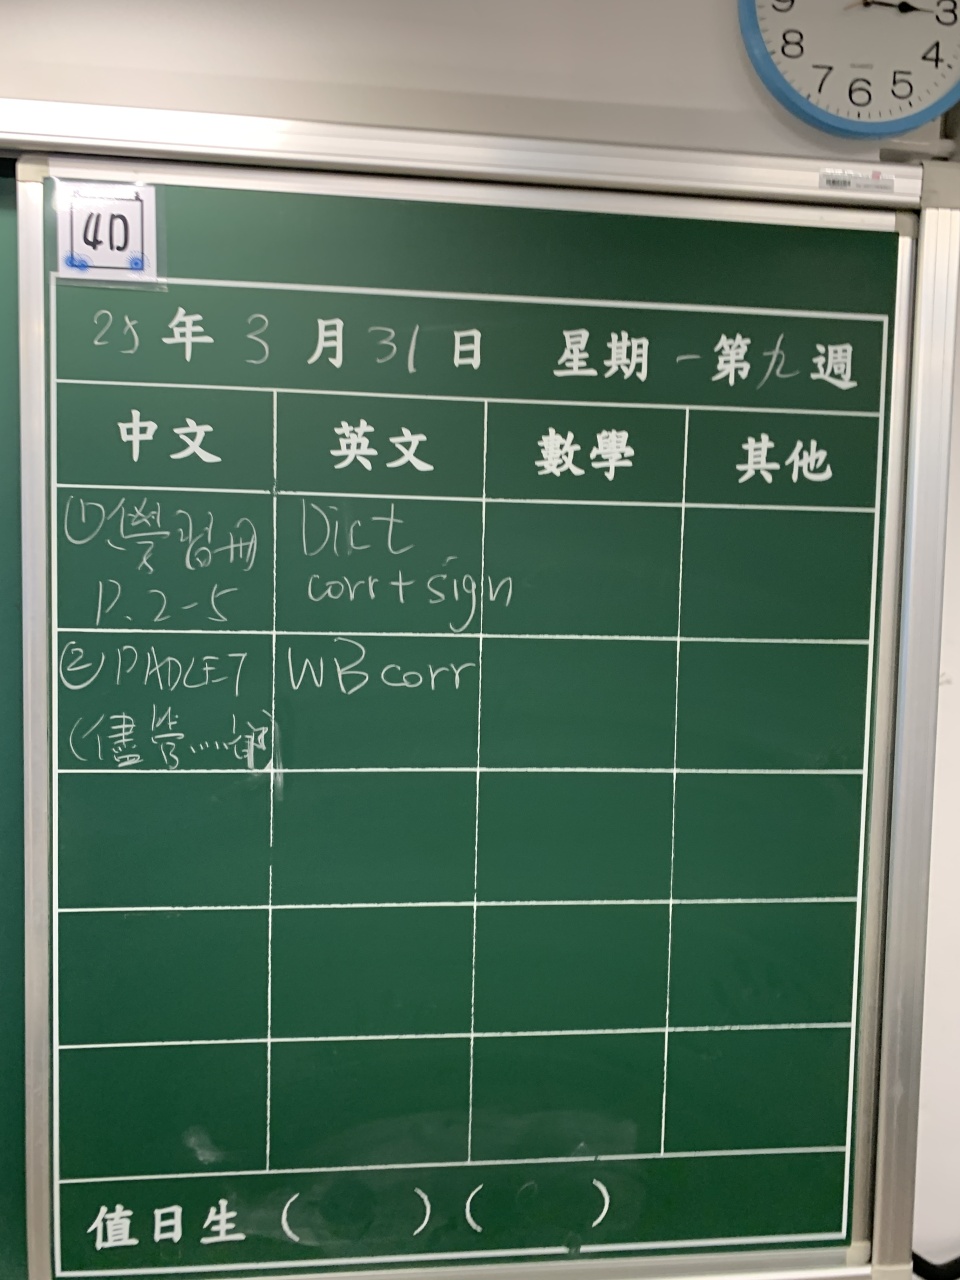 9 3
8 4
7 6 5
4D
25年3月31日 星期一第九週
中文 英文 數學 其他
①學習冊
P.2-5
Dict
corr+sign
②PADLET
(儘管……都)
WB corr
值日生 ( ) ( )